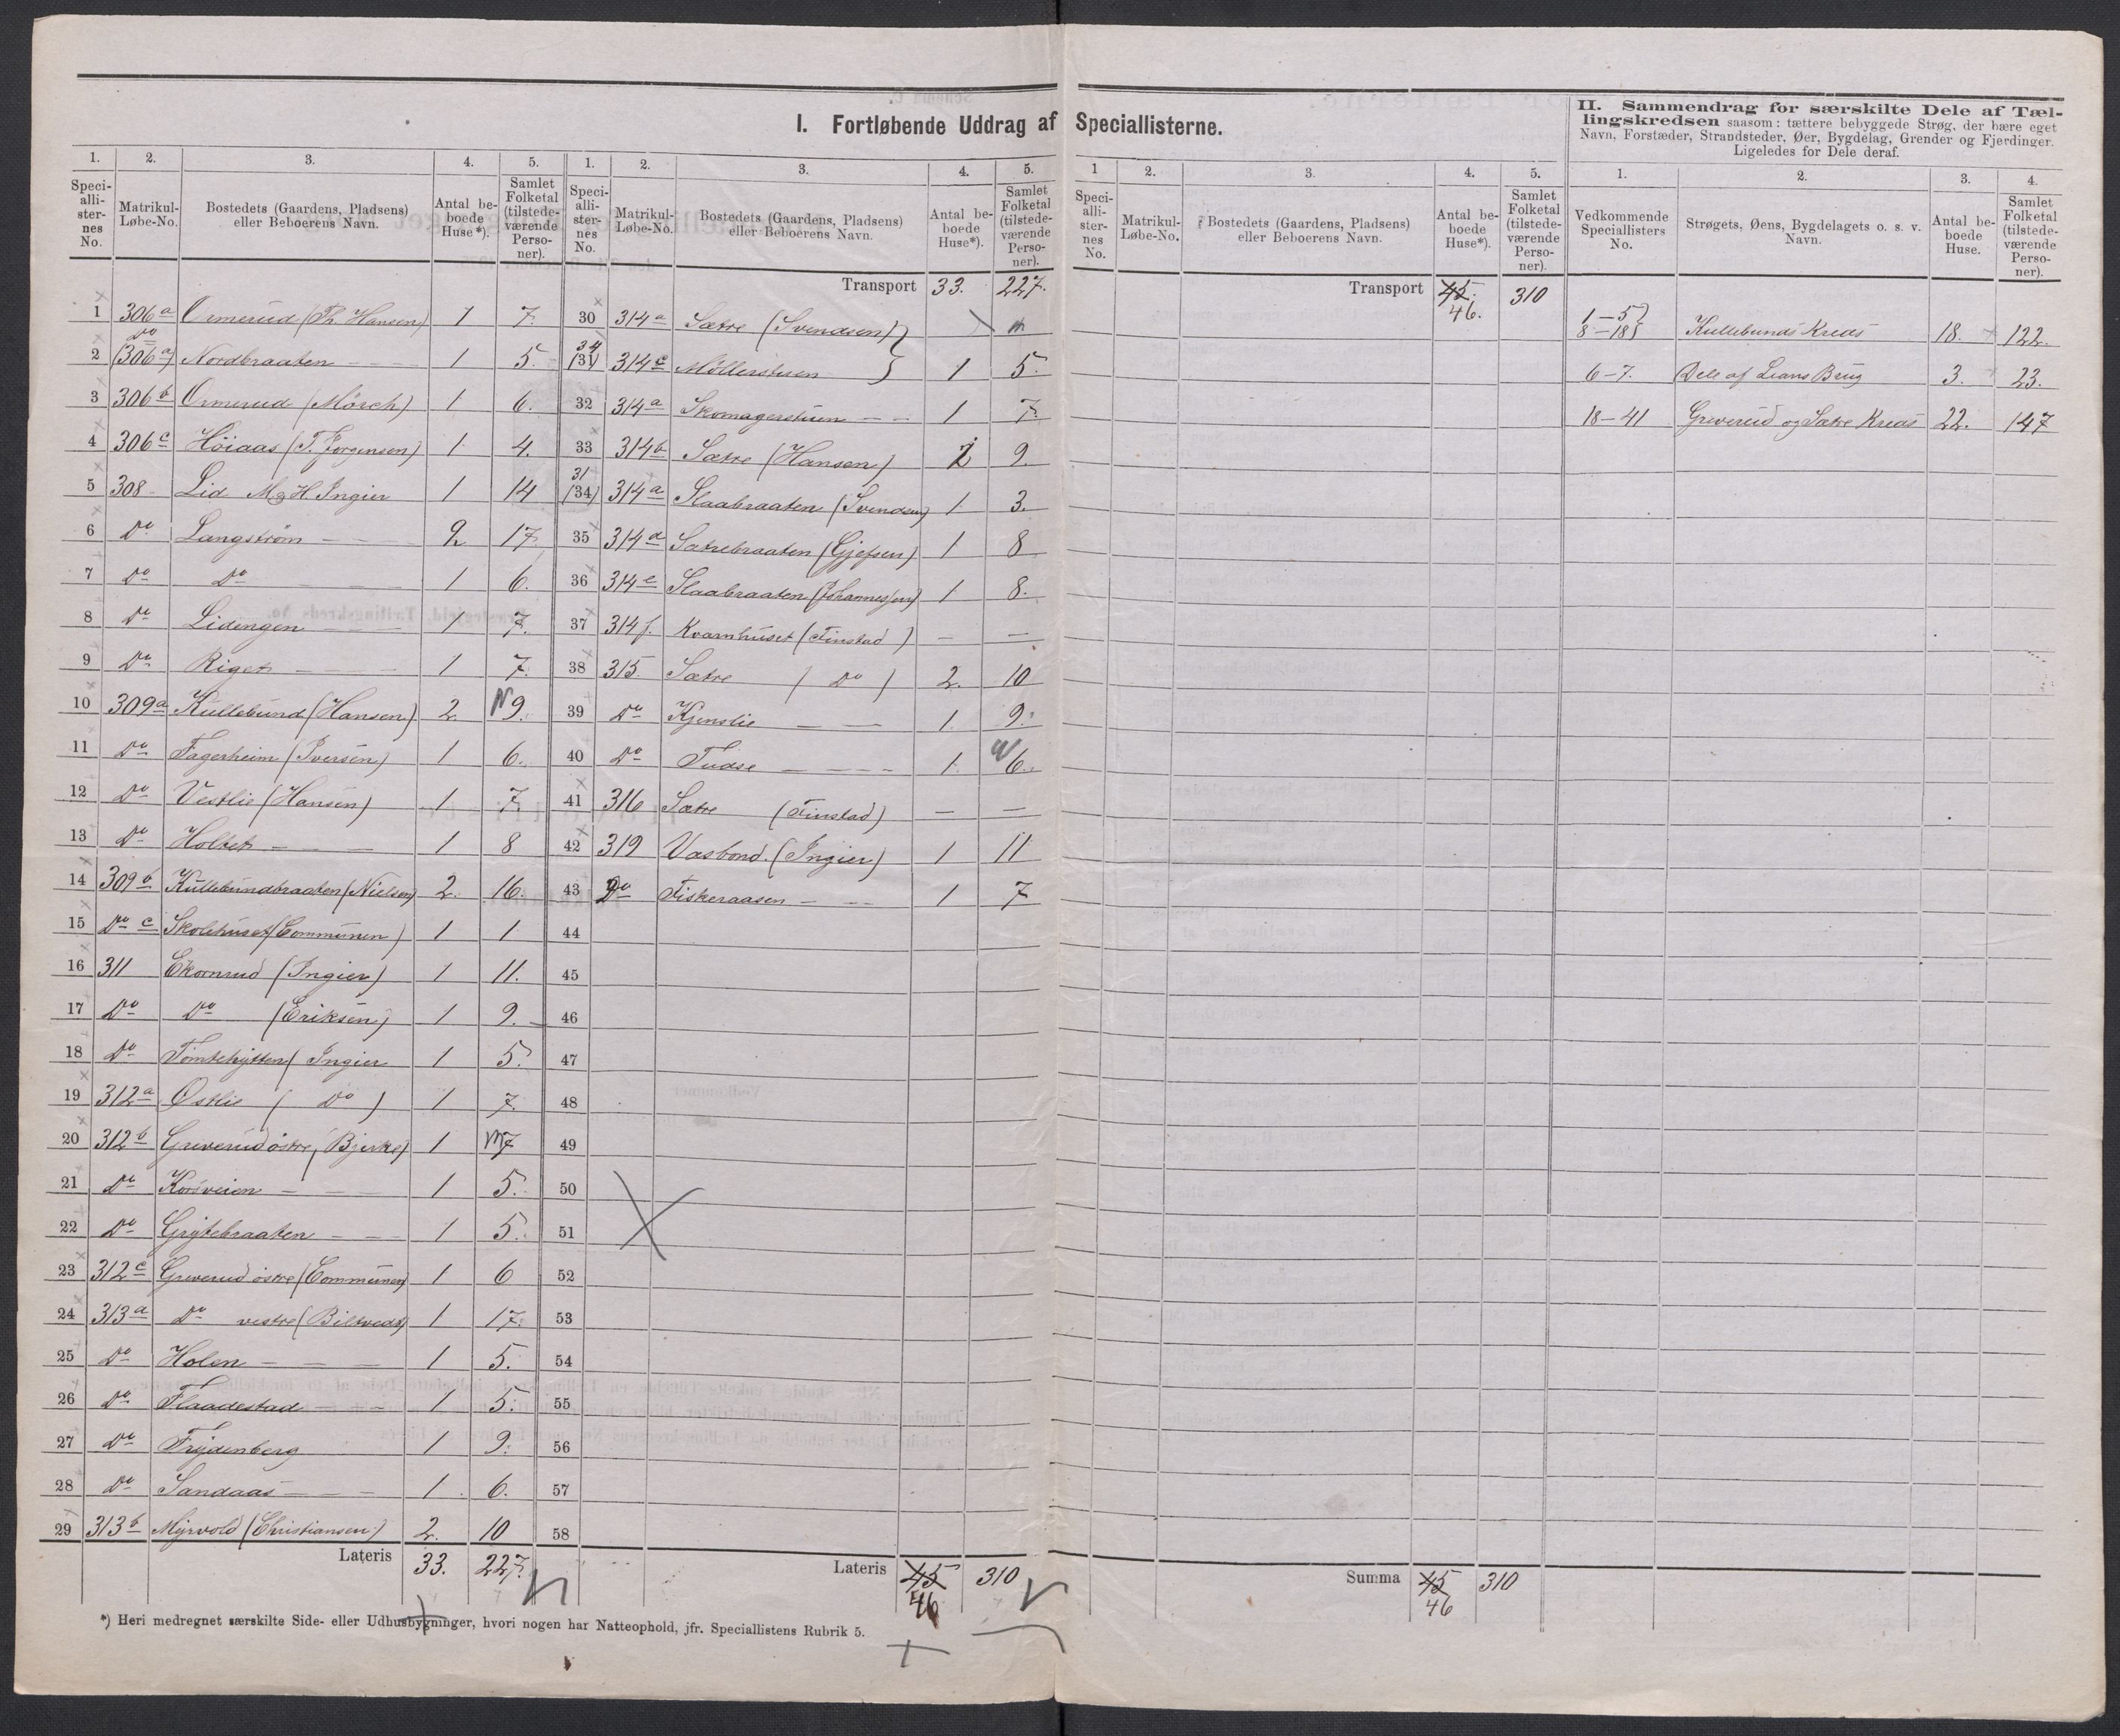 I. Fortløbende Uddrag af Speciallisterne.
1. 2. 3. 4. 5.
Speciallisternes No. Matrikul-Løbe-No. Bostedets (Gaardens, Pladsens) eller Beboerens Navn. Antal beboede Huse*). Samlet Folketal (tilstedeværende Personer).
1 306a Ormerud (Th. Hansen) 1 7.
2 Do (306a) Nordbraaten 1 5.
3 306b Ormerud (Mörch) 1 6.
4 306c Höiaas (T. Jorgensen) 1 4.
5 308 Lid M & H Ingier 1 14
6 Do Langström 2 17.
7 Do Do 1 6.
8 Do Lidengen 1 7.
9 Do Riget 1 7.
10 309a Kullebund (Hansen) 2. 9.
11 Do Fagerheim (Iversen) 1 6.
12 Do Vestlie (Hansen) 1 7.
13 Do Holtet 1 8
14 309b Kullebundbraaten (Nielsen) 2. 16.
15 Do c Skolehuset (Communen) 1 1
16 311 Ekornrud (Ingier) 1 11.
17 Do Do (Eriksen) 1 9.
18 Do Tomtehytten (Ingier 1 5.
19 312a Østlie ( Do ) 1 7.
20 312b Greverud östre (Bjerke) 1 7
21 Do Korsveien 1 5.
22 Do Grytebraaten 1 5.
23 312c Greverud östre (Communen) 1 6
24 313a Do vestre (Biltvedt) 1 17.
25 Do Holen 1 5.
26 Do Flaadestad 1 5.
27 Do Frydenberg 1 9.
28 Do Sandaas 1. 6.
29 313b Myrvold (Christiansen) 2. 10
Lateris 33. 227.
1. 2. 3. 4. 5.
Speciallisternes No. Matrikul-Løbe-No. Bostedets (Gaardens, Pladsens) eller Beboerens Navn. Antal beboede Huse*). Samlet Folketal (tilstedeværende Personer).
Transport 33. 227.
30 314a Sætre (Svendsen)
34 (31) 314c Möllerstuen 1 5.
32 314a Skomagerstuen 1 7.
33 314b Sætre (Hansen) 2 9.
31 (34) 314a Slaabraaten (Svendsen) 1 3.
35 314d Sætrebraaten (Gjefsen) 1 8
36 314e Slaabraaten (Johannessen) 1 8.
37 314f. Kvarnhuset (Finstad) — —
38 315. Sætre ( Do ) 2. 10
39 Do Kjenslie 1. 9.
40 Do Tudse 1. 6.
41 316 Sætre (Finstad) — —
42 319 Vasbond. (Ingier) 1 11
43 Do Fiskeraasen 1 7
44
45
46
47
48
49
50
51
52
53
54
55
56
57
58
Lateris 45 46 310
*) Heri medregnet særskilte Side- eller Udhusbygninger, hvori nogen har Natteophold, jfr. Speciallistens Rubrik 5.
1 2. 3. 4. 5.
Speciallisternes No. Matrikul-Løbe-No. Bostedets (Gaardens, Pladsens) eller Beboerens Navn. Antal beboede Huse*). Samlet Folketal (tilstedeværende Personer).
Transport 45. 46. 310
Summa 45 46 310
II. Sammendrag for særskilte Dele af Tællingskredsen saasom: tættere bebyggede Strøg, der bære eget Navn, Forstæder, Strandsteder, Øer, Bygdelag, Grender og Fjerdinger. Ligeledes for Dele deraf.
1. 2. 3. 4.
Vedkommende Speciallisters No. Strøgets, Øens, Bygdelagets o. s. v. Navn. Antal beboede Huse. Samlet Folketal (tilstedeværende Personer).
1–5
8–18 Kullebunds Kreds 18. 122.
6–7. Dele af Lians Brug 3. 23.
18–41 Greverud og Sætre Kreds 22. 147